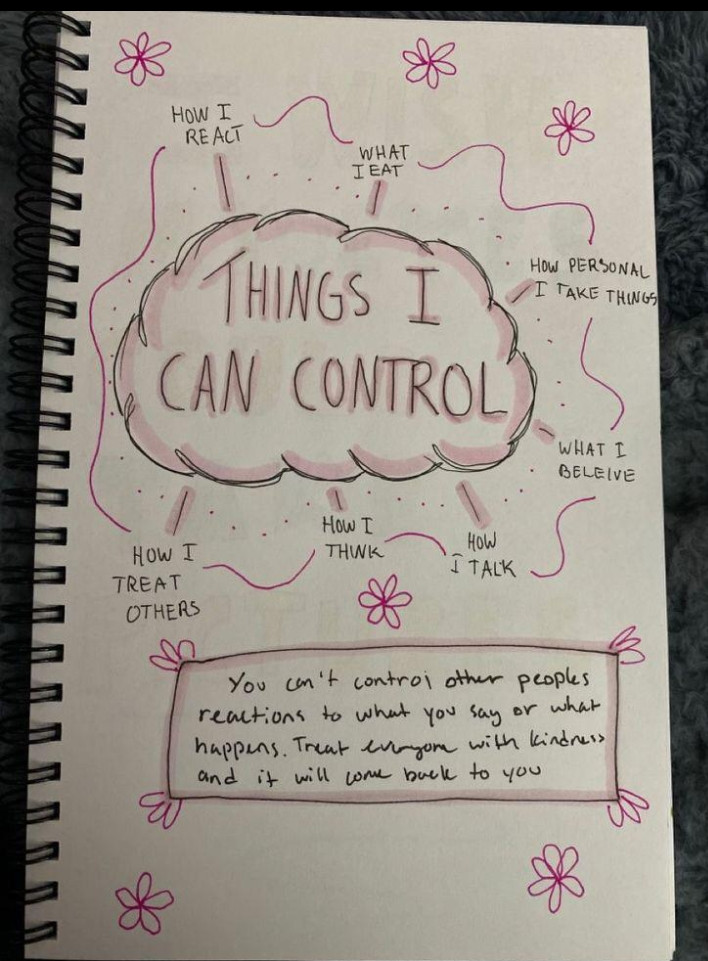 HOW I
REACT
WHAT
I EAT
THINGS I
CAN CONTROL
HOW PERSONAL
I TAKE THINGS
WHAT I
BELEIVE
HOW
I TALK
HOW I
THINK
HOW I
TREAT
OTHERS
You can't control other peoples
reactions to what you say or what
happens. Treat everyone with kindness
and it will come back to you